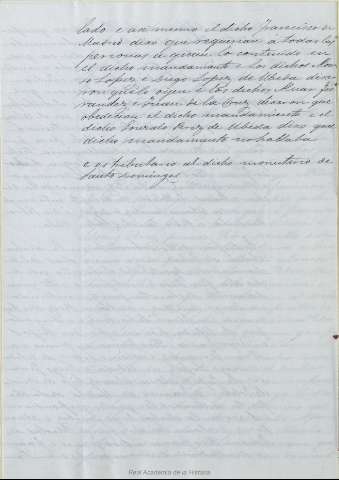 lado e asi mesmo el dicho Francisco de
Madrid dixo que requerian a todas las
personas a quien lo contenido en
el dicho mandamiento e los dichos
Lopez e Diego Lopez de Ubeda dixe
ron que lo oyen e los dichos Juan
e de la Cruz dixeron que
obedecian el dicho mandamiento e el
dicho Perez de Ubeda dixo que
dicho mandamiento no hablaba
e es tributario al dicho monasterio de
Santo Domingo
Real Academia de la Historia